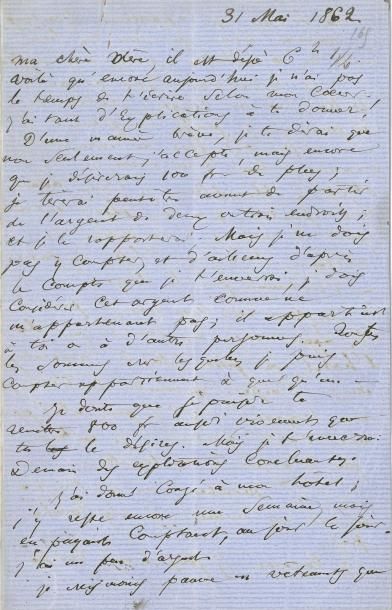 31 Mai 1862
165
ma chère Mère, il est déjà 6 h 1/2.
voilà qu'encore aujourd'hui je n'ai pas
le temps de t'écrire selon mon cœur.
J'ai tant d'explications à te donner!
D'une manière brève, je te dirai que
non seulement j'accepte, mais encore
que je désirerais 100 fr de plus;
je tirerai peut-être avant de partir
de l'argent de deux ou trois endroits;
et je le rapporterai. Mais je ne dois
pas y compter, et d'ailleurs d'après
le compte que je t'enverrai, je dois
considérer cet argent comme ne
m'appartenant pas; il appartient
à toi ou à d'autres personnes. Toutes
les sommes sur lesquelles je puis
compter appartiennent à quelqu'un. —
Je doute que je puisse te
rendre 800 fr aussi vivement que
tu le désires. Mais je t'enverrai
demain des explications concluantes.
J'ai donné congé à mon hôtel;
j'y reste encore une semaine, mais
en payant comptant, au jour le jour.
j'ai un peu d'argent.
je suis pauvre en vêtements que